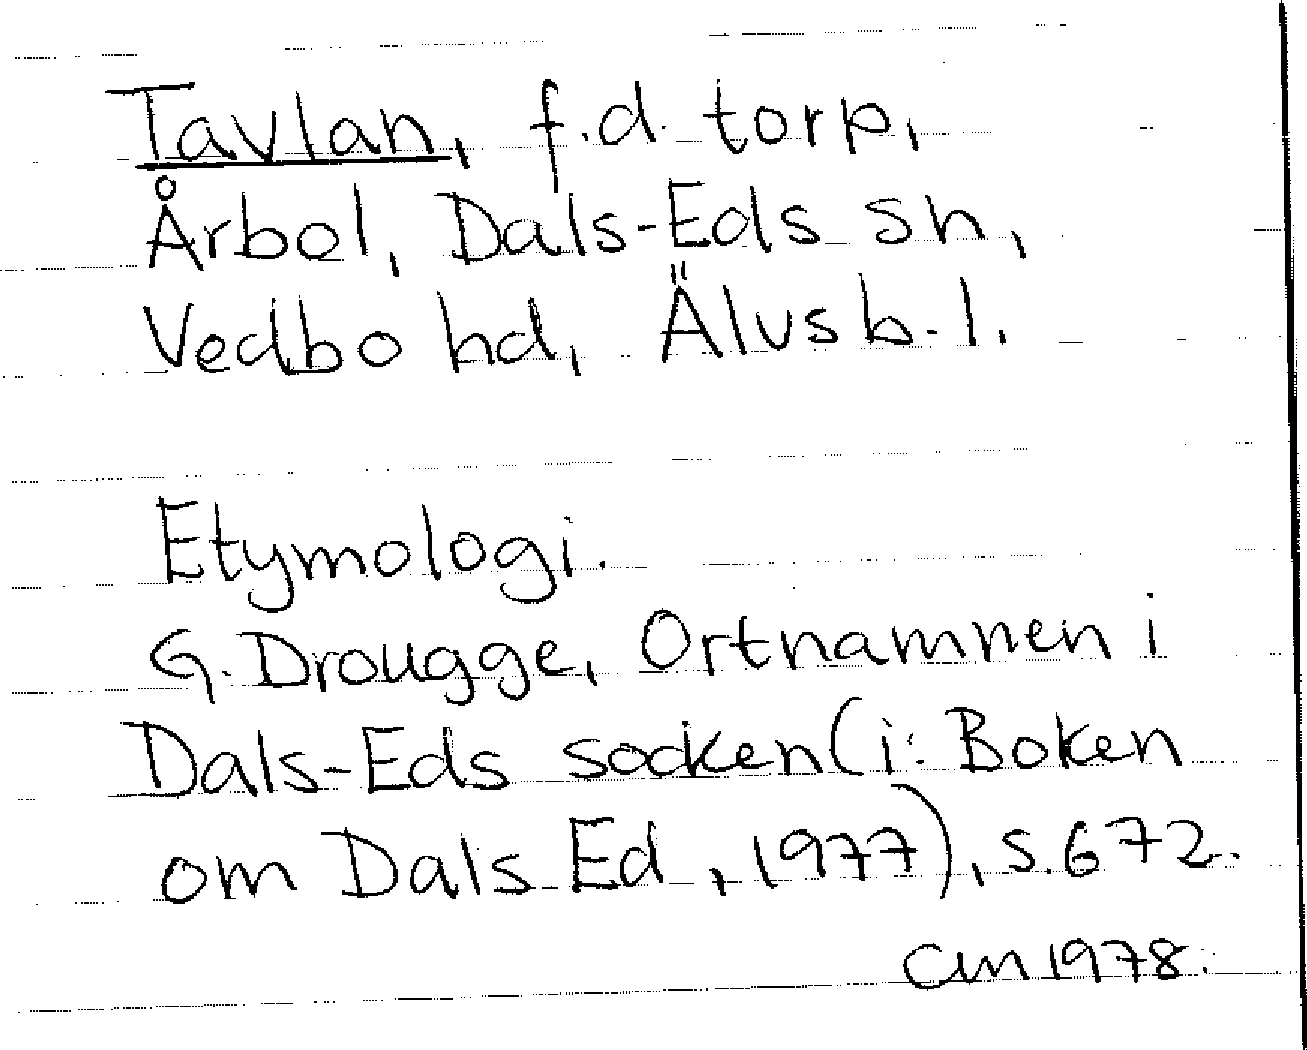 Tavlan, f.d. torp,
Årbol, Dals-Eds sn,
Vedbo hd, Älvsb. l.
Etymologi.
G. Drougge, Ortnamnen i
Dals-Eds socken (i: Boken
om Dals Ed, 1977), s. 672.
CLn 1978.